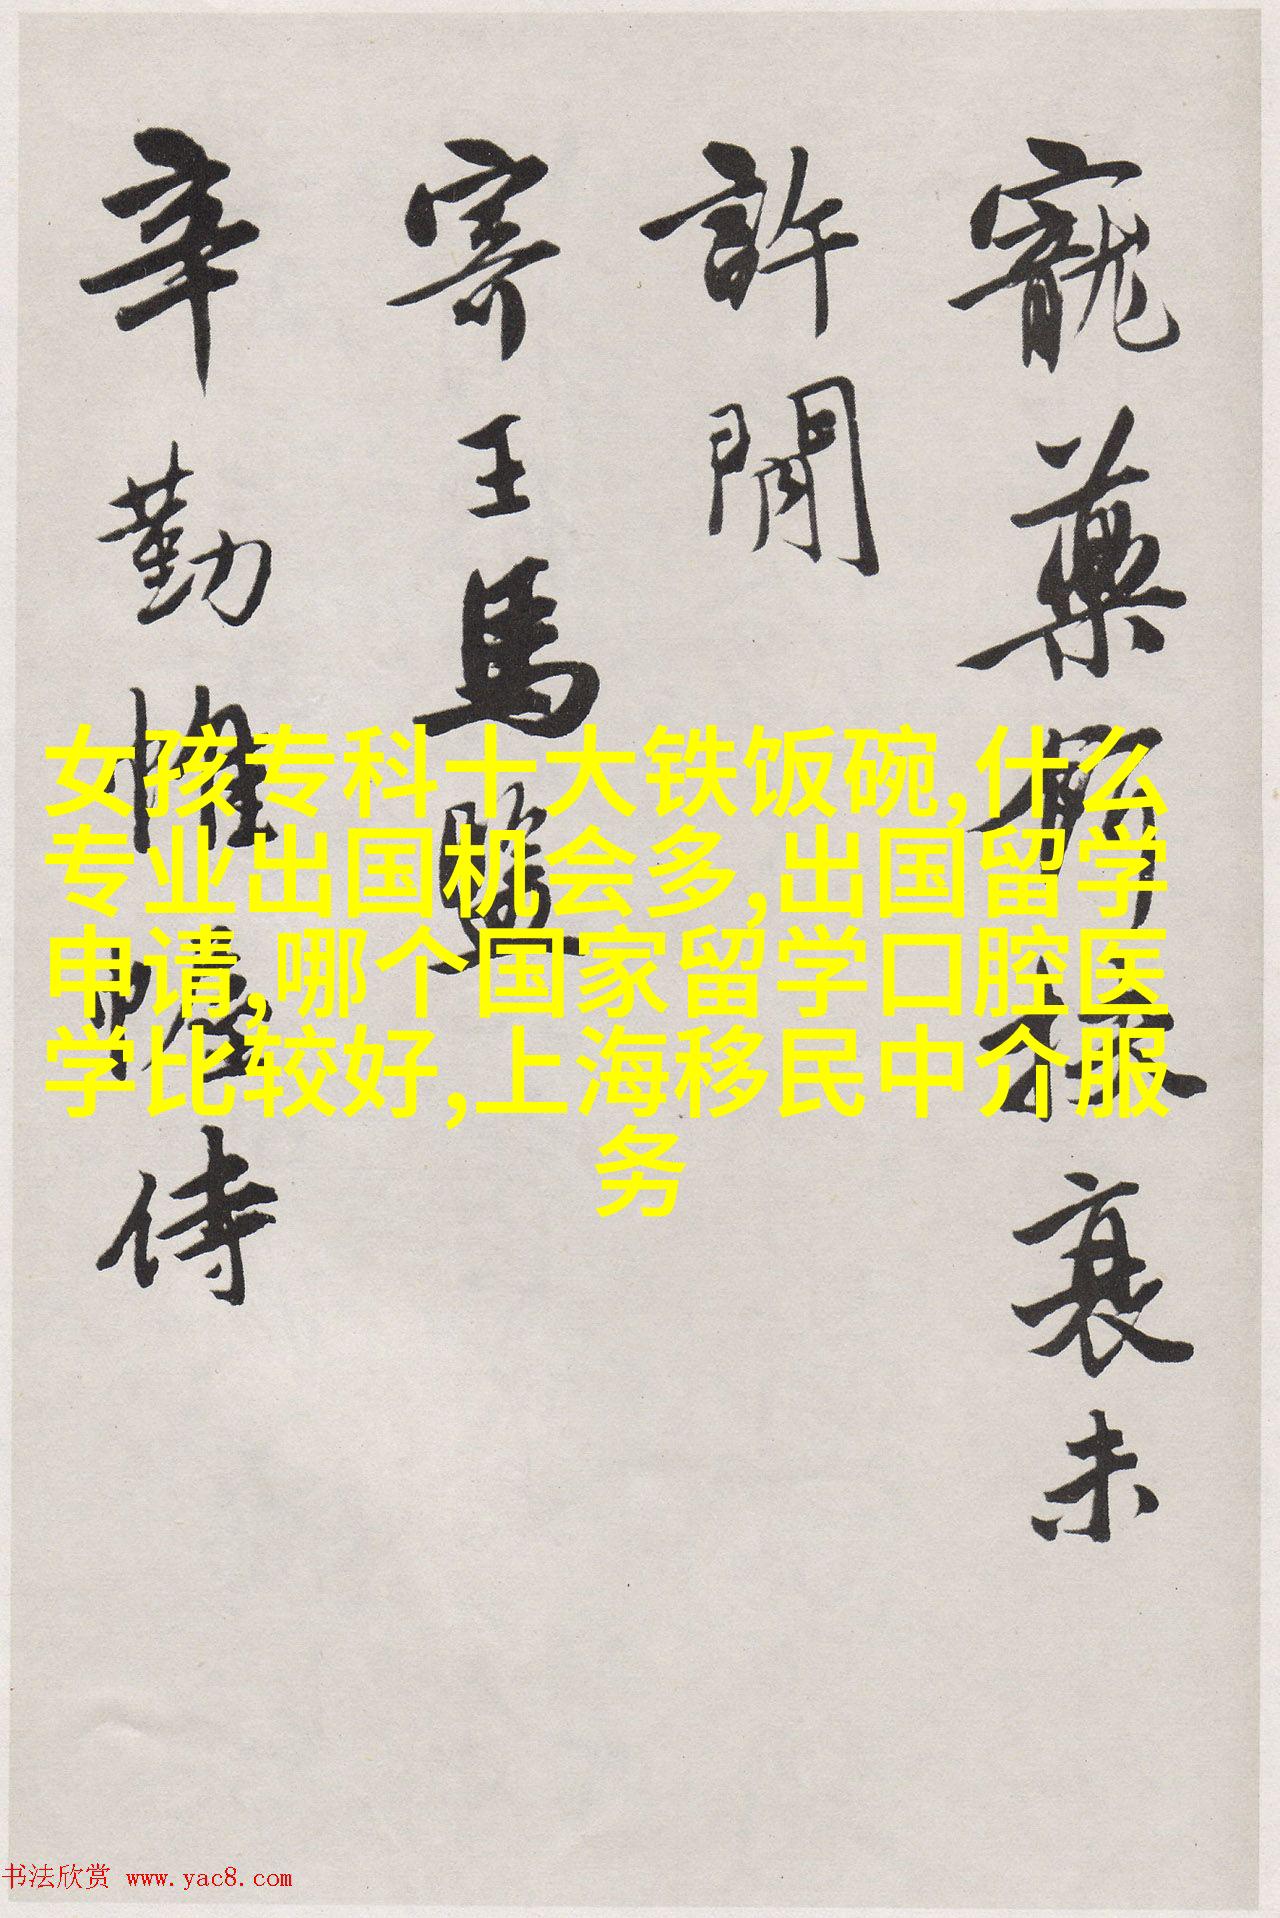 寵藥衰未
許閒
寄王馬
辛勤惟侍
女孩专科十大铁饭碗,什么
专业出国机会多,出国留学
申请,哪个国家留学口腔医
学比较好,上海移民中介服
务
书法欣赏 www.yac8.com